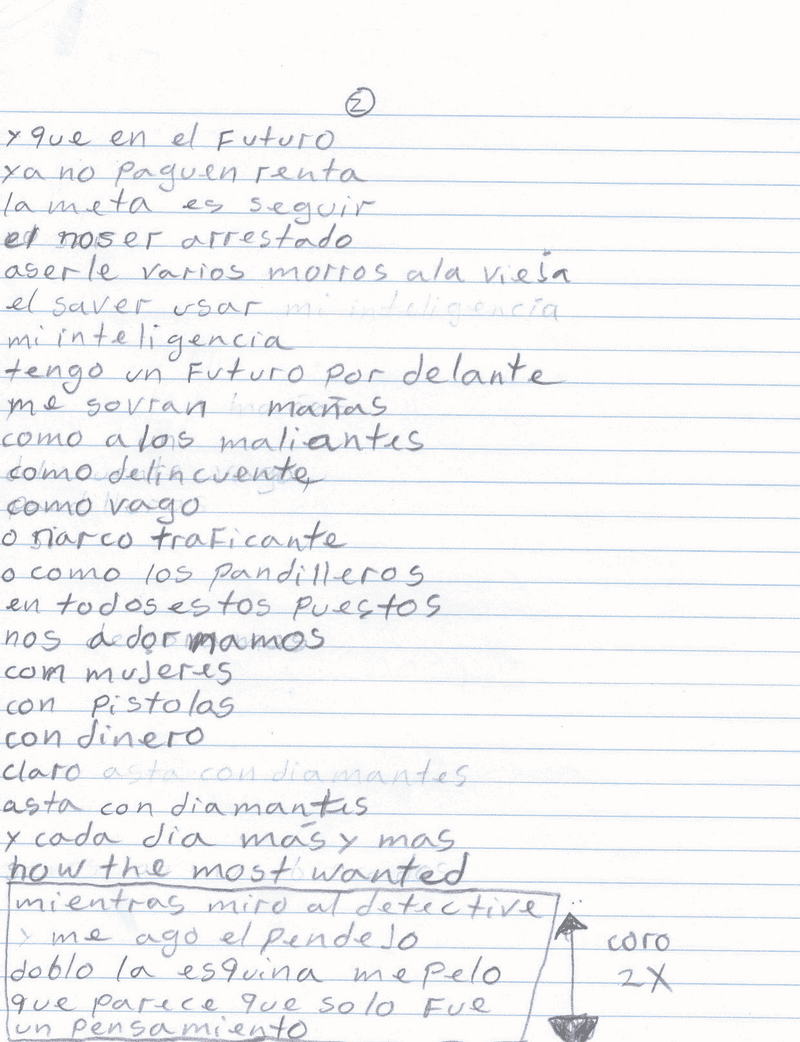 2
y que en el Futuro
ya no paguen renta
la meta es seguir
el noser arrestado
aserle varios morros ala vieja
el saver usar mi inteligencia
mi inteligencia
tengo un Futuro por delante
me sovran mañas
como a los maliantes
como delincuente
como vago
o narco traFicante
o como los pandilleros
en todos estos puestos
nos adormamos
com mujeres
con pistolas
con dinero
claro asta con diamantes
asta con diamantes
y cada dia más y mas
how the most wanted
mientras miro al detective
y me ago el pendejo
doblo la esquina me pelo
que parece que solo Fue
un pensamiento
coro
2X